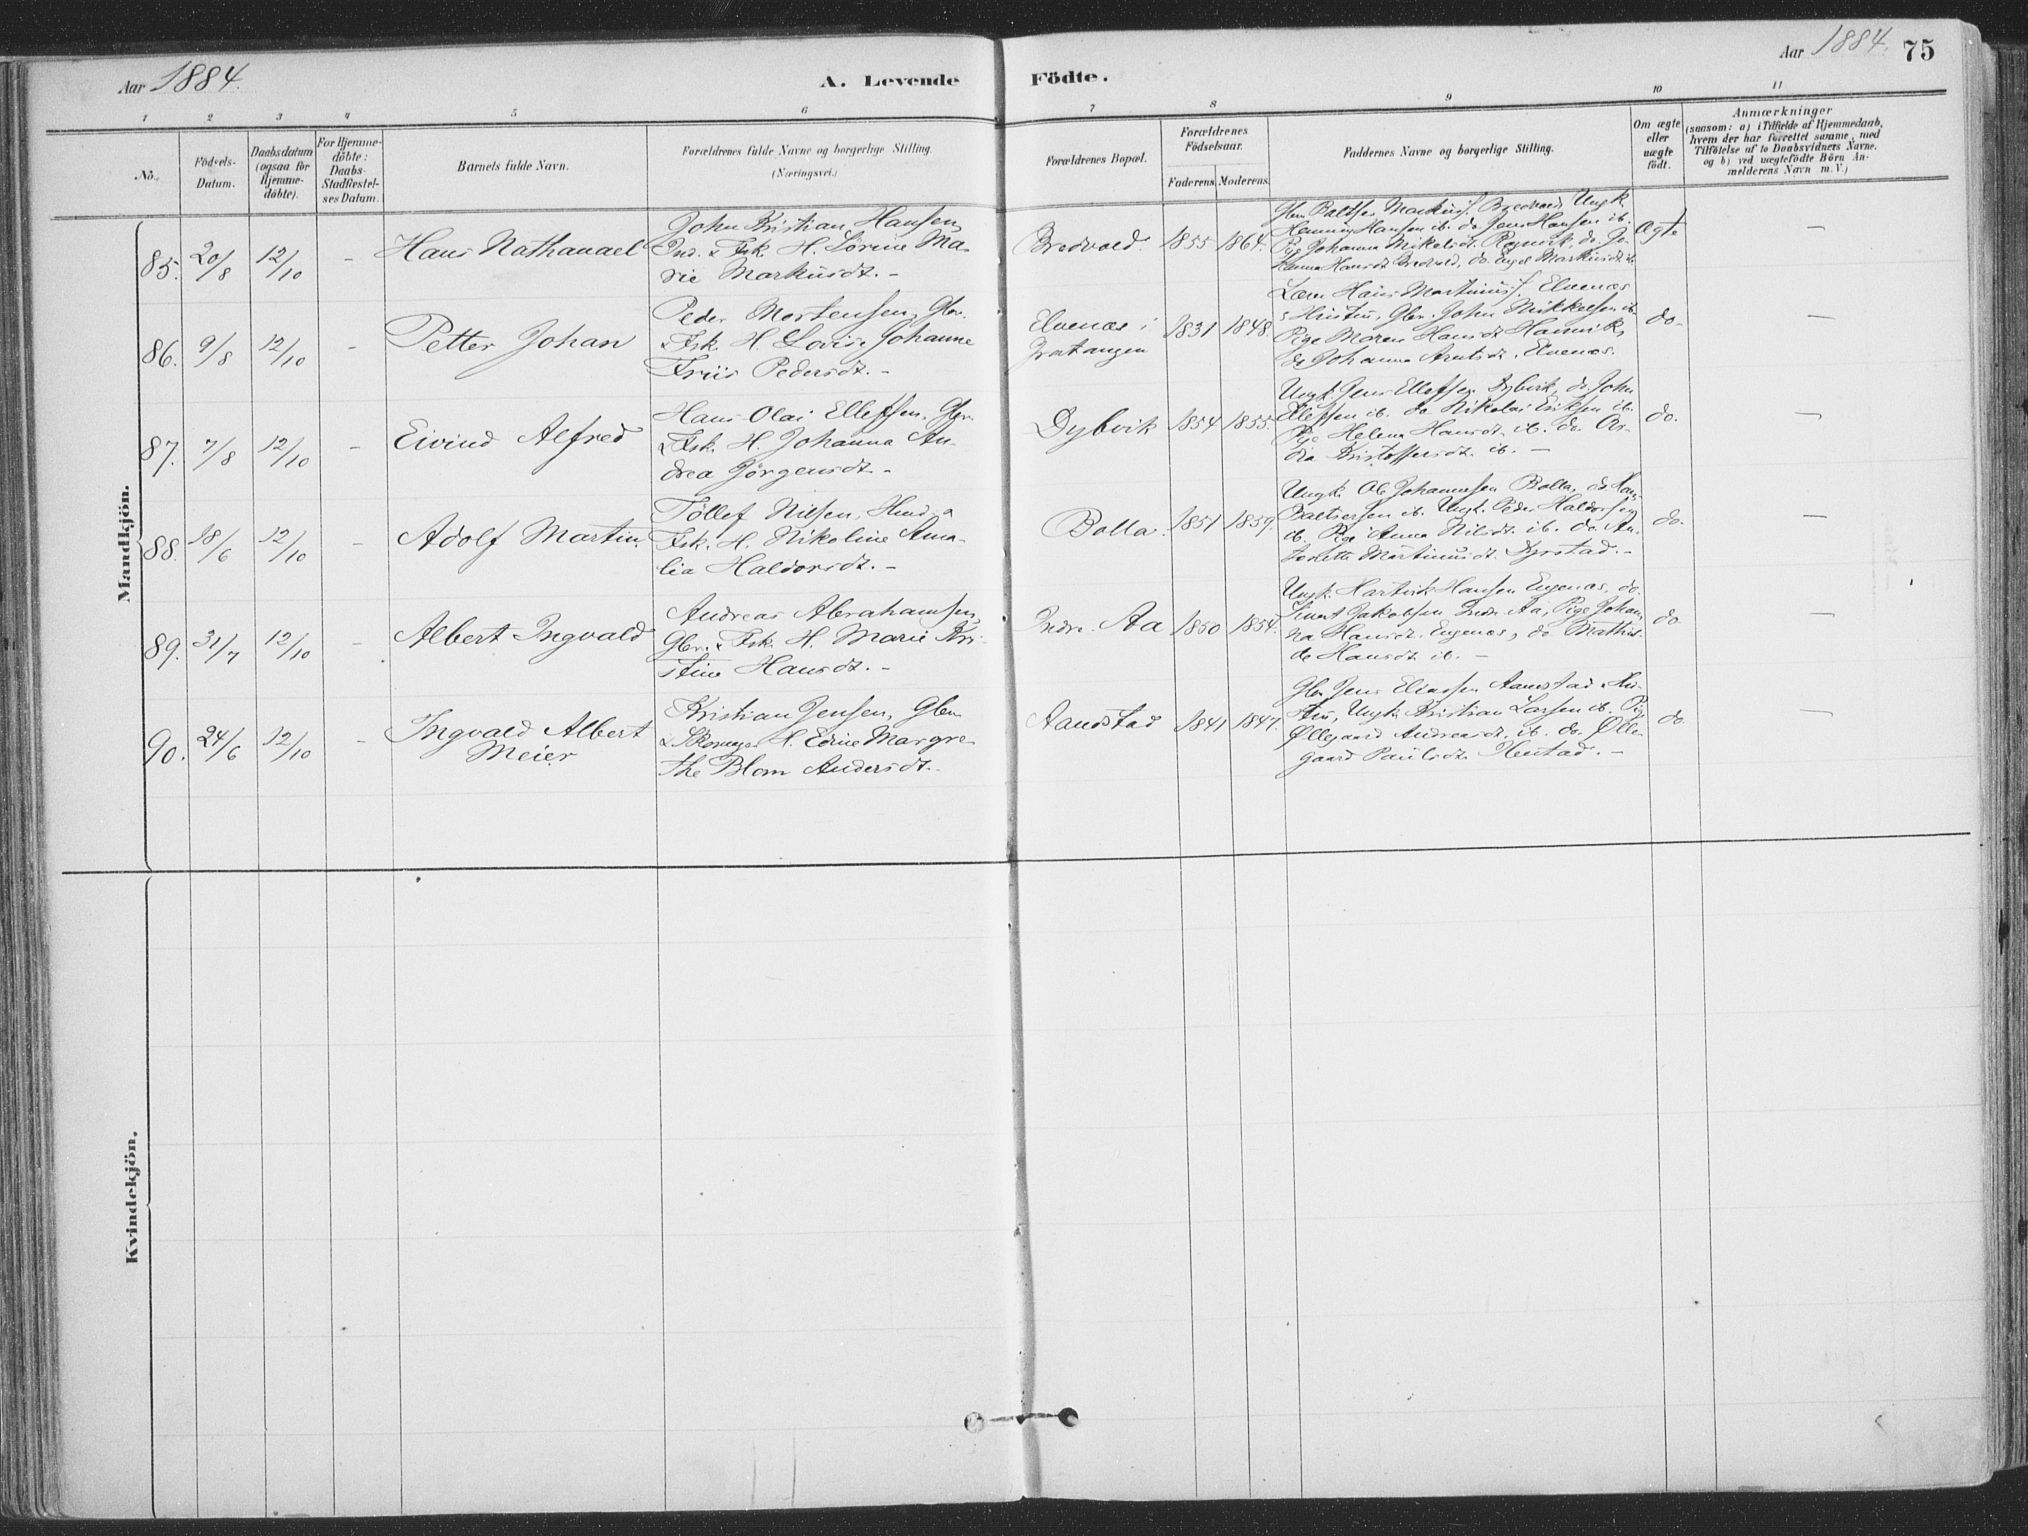 Aar 1884.
A. Levende Födte.
Aar 1884. 75
1 2 3 4 5 6 7 8 9 10 11
No.
Födsels-Datum.
Daabsdatum (ogsaa for Hjemme-döbte).
For Hjemme-döbte: Daabs-Stadfæstel-ses Datum.
Barnets fulde Navn.
Forældrenes fulde Navne og borgerlige Stilling.
(Næringsvei.)
Forældrenes Bopæl.
Forældrenes Födselsaar.
Faderens. Moderens.
Faddernes Navne og borgerlige Stilling.
Om ægte eller uægte födt.
Anmærkninger
(saasom: a) i Tilfælde af Hjemmedaab,
hvem der har forrettet samme, med
Tilföielse af to Daabsvidners Navne,
og b) ved uægtefödte Börn An-
melderens Navn m. V.)
Mandkjön.
85. 20/8 12/10 - Hans Nathanael
John Kristian Hansen,
Ins. & Fsk. H. Lorine Ma-
rie Markusdt. -
Bredvold. 1855 1864.
Gbr Baltser Markuss. Bredvold, Ungk
Henning Hansen ib. do Jens Hansen ib.
Pige Johanna Mikalsdt. do. Jo-
hanna Hansdt Bredvold, do. Engel Markusdt. ib
Ægte -
86. 9/8 12/10 - Petter Johan
Peder Mortensen, Gbr.
& Fsk. H. Lovise Johanne
Friis Pedersdt. -
Elvenæs i
Gratangen 1831 1848.
Lærer Hans Martinuss. Elvenæs
& Hustru, Gbr. John Mikkelsen ib.
Pige Maren Hansdt Hamvik,
do Johanna Arntsdt. Elvenæs.
do. -
87. 7/8 12/10 - Eivind Alfred
Hans Olai Ellefsen, Gbr.
& Fsk. H. Johanna An-
drea Jørgensdt. -
Dybvik 1854 1855.
Ungk. Jens Ellefsen Dybvik, do. John
Ellefsen ib. do. Nikolai Eriksen ib.
Pige Helena Hansdt. ib. do.
Kristoffersdt. ib. -
do. -
88. 18/6 12/10 - Adolf Martin.
Tøllef Nilsen, &
Fsk. H. Nikoline Ama-
lia Haldorsdt. -
Bolla. 1851 1859.
Ungk. Ole Johannesen Bolla, do.
Baltsersen ib. Ungk. Peder Haldorsen
ib. Pige Anna Nilsdt. ib. do. An-
tonette Martinusdt. Dyrstad. -
do. -
89. 31/7 12/10 - Albert Ingvald
Andreas Abrahamsen,
Gbr. & Fsk. H. Marie Kri-
stine Hansdt. -
Indre Aa 1850 1854.
Ungk. Hartvik Hansen Engenæs, do.
Sivert Jakobsen Indr. Aa, Pige Johan-
na Hansdt. Engenæs, do. Mathil-
de Hansdt ib. -
do. -
90. 24/6 12/10 - Ingvald Albert
Meier
Kristian Jensen, Gbr.
& Skomager H. Edine Margre-
the Blom Andersdt. -
Aandstad 1841 1847.
Gbr Jens Eliassen Aanstad & Hu-
stru, Ungk. Kristian Larsen ib. Pig
Øllegaard Andreasdt. ib. do. Ølle-
gaard Paulsdt. -
do. -
Kvindekjön.